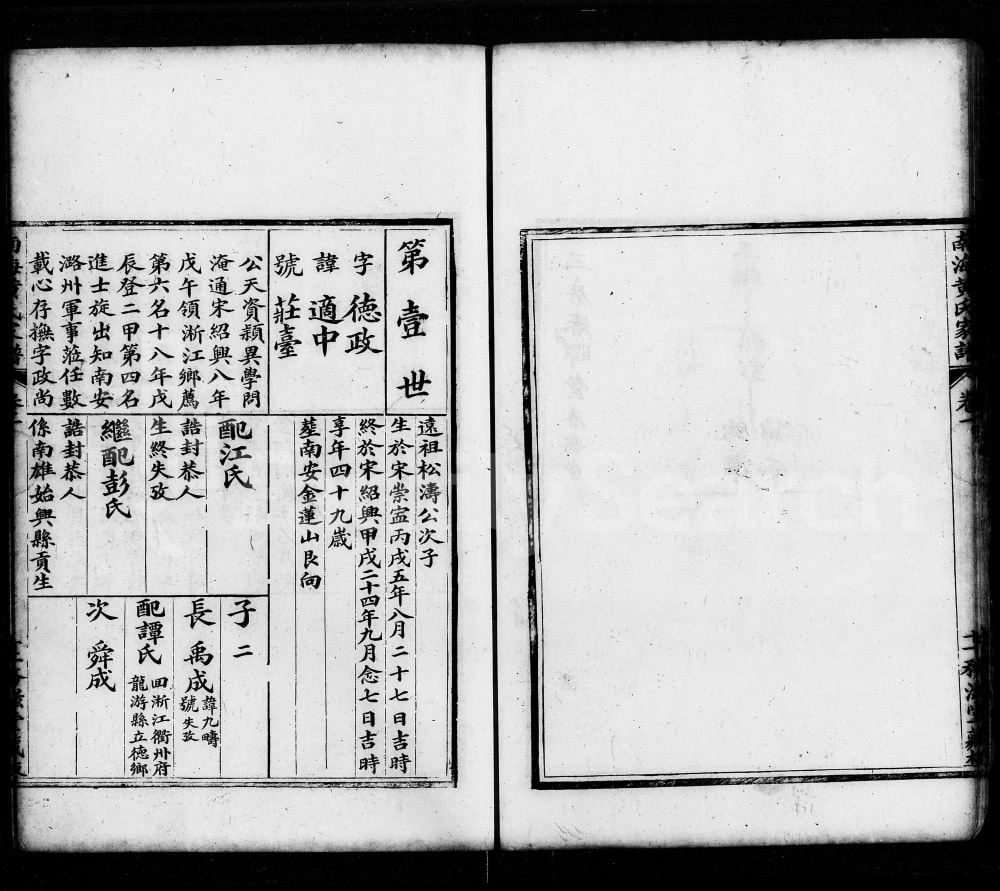 南海黄氏家譜
卷
第壹世
字德政
諱適中
號莊臺
遠祖松濤公次子
生於宋崇寍丙戌五年八月二十七日吉時
終於宋紹興甲戌二十四年九月念七日吉時
享年四十九歲
葬南安金蓮山艮向
公天資穎異學問
淹通宋紹興八年
戊午領浙江鄉薦
第六名十八年戊
辰登二甲第四名
進士旋出知南安
潞州軍事蒞任數
載心存撫字政尚
配江氏
誥封恭人
生終失攷
繼配彭氏
誥封恭人
係南雄始興縣貢生
子二
長禹成
諱九疇
號失攷
配譚氏
回浙江衢州府
龍游縣立德鄉
次舜成